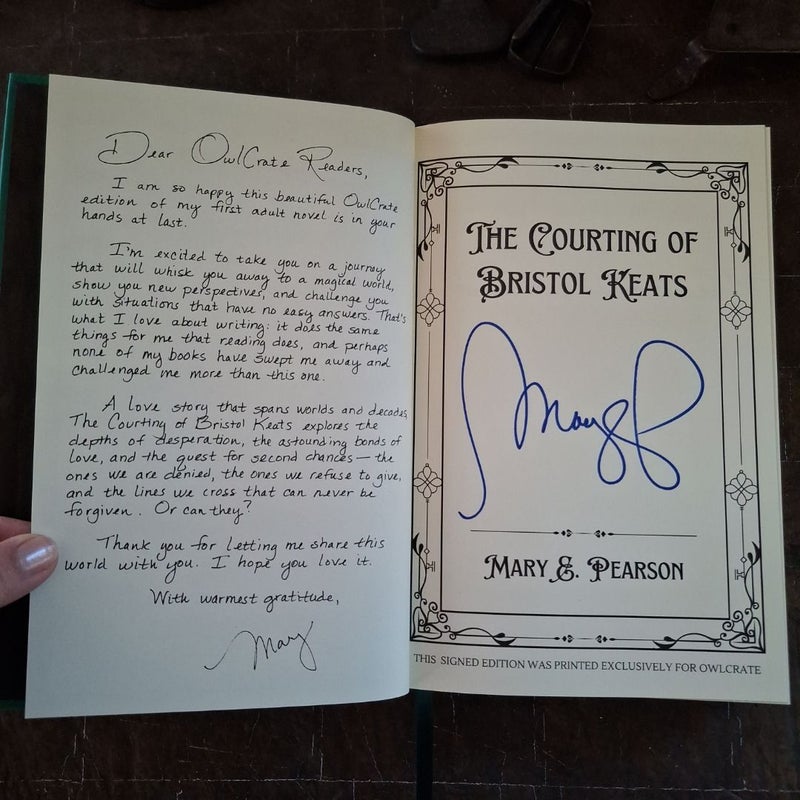 Dear OwlCrate Readers,
I am so happy this beautiful OwlCrate
edition of my first adult novel is in your
hands at last.
I'm excited to take you on a journey
that will whisk you away to a magical world,
show you new perspectives, and challenge you
with situations that have no easy answers. That's
what I love about writing: it does the same
things for me that reading does, and perhaps
none of my books have swept me away and
challenged me more than this one.
A love story that spans worlds and decades,
The Courting of Bristol Keats explores the
depths of desperation, the astounding bonds of
love, and the quest for second chances — the
ones we are denied, the ones we refuse to give,
and the lines we cross that can never be
forgiven. Or can they?
Thank you for letting me share this
world with you. I hope you love it.
With warmest gratitude,
Mary
THE COURTING OF
BRISTOL KEATS
Mary P
MARY E. PEARSON
THIS SIGNED EDITION WAS PRINTED EXCLUSIVELY FOR OWLCRATE